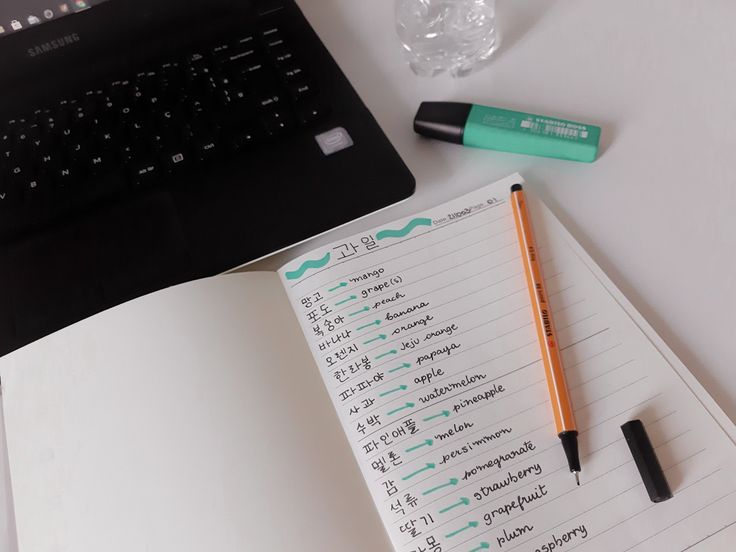 SAMSUNG
STABILO BOSS
Date 211003 Page 01
과일
망고 → mango
포도 → grape(s)
복숭아 → peach
바나나 → banana
오렌지 → orange
한라봉 → Jeju orange
파파야 → papaya
사과 → apple
수박 → watermelon
파인애플 → pineapple
멜론 → melon
감 → persimmon
석류 → pomegranate
딸기 → strawberry
몽 → grapefruit
plum
spberry
STABILO